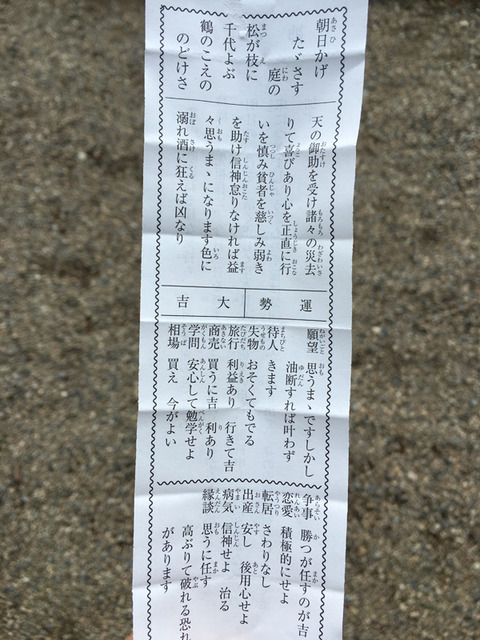 朝日かげ
たゞさす
庭の
松が枝に
千代よぶ
鶴のこえの
のどけさ
天の御助を受け諸々の災去
りて喜びあり心を正直に行
いを慎み貧者を慈しみ弱き
を助け信神怠りなければ益
々思うまゝになります色に
溺れ酒に狂えば凶なり
運勢
大吉
願望 思うまゝですしかし
油断すれば叶わず
待人 きます
失物 おそくてもでる
旅行 利益あり 行きて吉
商売 買うに吉 利あり
学問 安心して勉学せよ
相場 買え 今がよい
争事 勝つが任すのが吉
恋愛 積極的にせよ
転居 さわりなし
出産 安し 後用心せよ
病気 信神せよ 治る
縁談 思うに任す
高ぶりて破れる恐れ
があります